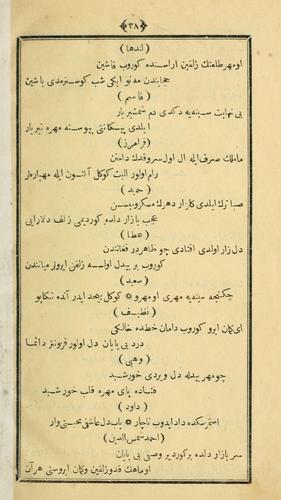 ٣٨
( لندها )
اومهر طلعتك زلفين اراسنده كوروب قاشين
حجابندن مه نو ايكى شب كوسترمدى باشين
( قاسم )
بى نهايت سينه يه دكدى دم شمشير يار
ايلدى پيكانى پيوسته مهره تير يار
( فرامرز )
مالك صرف ايله ال اول سروقدك دامنن
رام اولور البت كوكل آلتون ايله مهپاره لر
( حميد )
صبا ترك ايلدى كلزار دهرك
عجب بازار دلده كورديمى زلف دلارايى
( عطا )
دل زار اولدى افتادى چو ظاهر در فغانندن
كوروب بر بيدل اولسه زلفن ايرولر مياننده
( سعيد )
چكنجه سينه يه مهرى اومهرو * كوكل بيحد ايدر آنده تكاپو
( نظيف )
اى كمان ابرو كوروب دامان خطده خالكى
درد بى پايان دل اولور فزونتر دائما
( وهبى )
چو مهر بيدله دل ويردى خورشيد
فتاده پاى مهره قلب خورشيد
( داود )
استر كده داد ايدوب ناچار * باب دل عاشق محبتى وار
( احمد شمس الدين )
سر بازار دلده بر كوردير وصفى بى پايان
اوماهك قدوزلفين وكمان ابروسنى هرآن